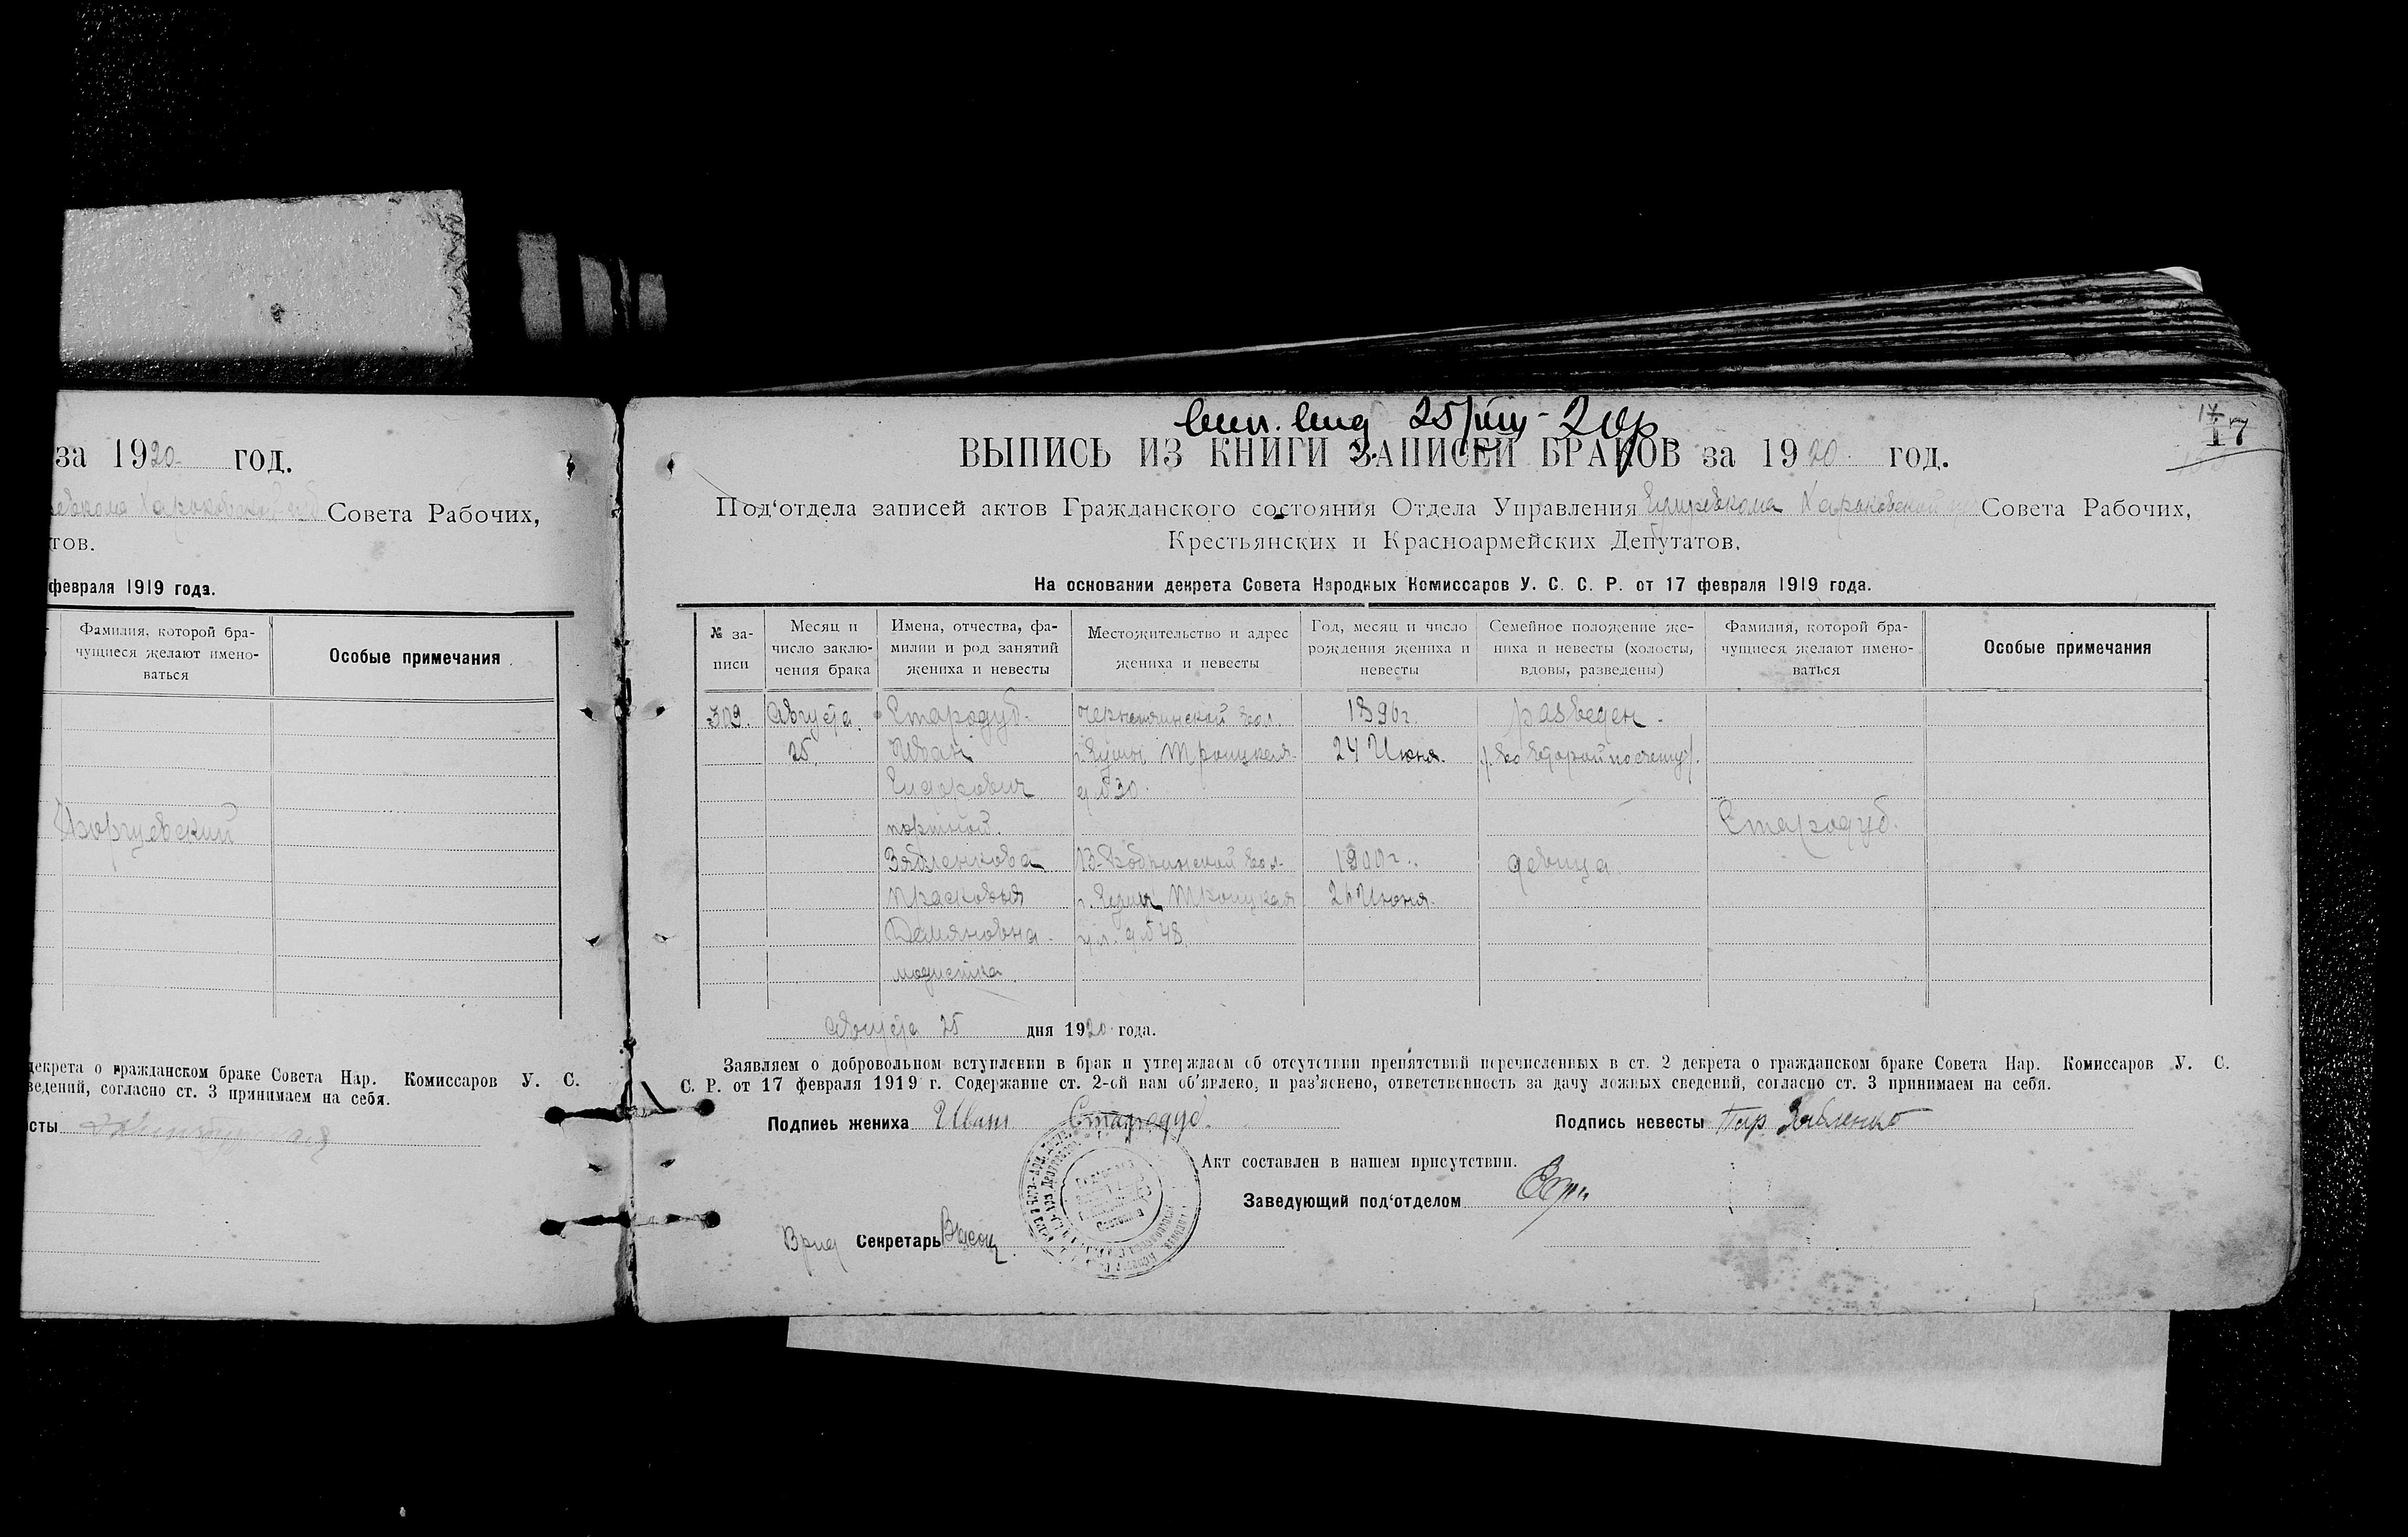 за 1920 год.
Совета Рабочих,
тов.
февраля 1919 года.
Фамилия, которой бра-
чущиеся желают имено-
ваться
Особые примечания
декрета о гражданском браке Совета Нар. Комиссаров У. С.
ведений, согласно ст. 3 принимаем на себя.
сты
25/VIII-20г.
17
17
ВЫПИСЬ ИЗ КНИГИ ЗАПИСЕЙ БРАКОВ за 1920 год.
Под‘отдела записей актов Гражданского состояния Отдела Управления Харьковской Совета Рабочих,
Крестьянских и Красноармейских Депутатов.
На основании декрета Совета Народных Комиссаров У. С. С. Р. от 17 февраля 1919 года.
№ за-
писи
Месяц и
число заклю-
чения брака
Имена, отчества, фа-
милии и род занятий
жениха и невесты
Местожительство и адрес
жениха и невесты
Год, месяц и число
рождения жениха и
невесты
Семейное положение же-
ниха и невесты (холосты,
вдовы, разведены)
Фамилия, которой бра-
чущиеся желают имено-
ваться
Особые примечания
309. Августа Стародуб. вол. 1896г. разведен.
25. Иван г. Сумы Троицкая 24 Июня. (во второй по счету).
Сидорович д № 30.
портной. Стародуб.
Зябленкова вол. 1900г. девица
Прасковья г. Сумы Троицкая 26 Июня.
Демяновна. ул. д № 48.
модистка
Августа 25 дня 1920 года.
Заявляем о добровольном вступлении в брак и утверждаем об отсутствии препятствий перечисленных в ст. 2 декрета о гражданском браке Совета Нар. Комиссаров У. С.
С. Р. от 17 февраля 1919 г. Содержание ст. 2-ой нам об’явлено, и раз’яснено, ответственность за дачу ложных сведений, согласно ст. 3 принимаем на себя.
Подпись жениха Иван Стародуб. Подпись невесты Пар. Зябленко
Акт составлен в нашем присутствии.
Заведующий под‘отделом
Врид Секретарь